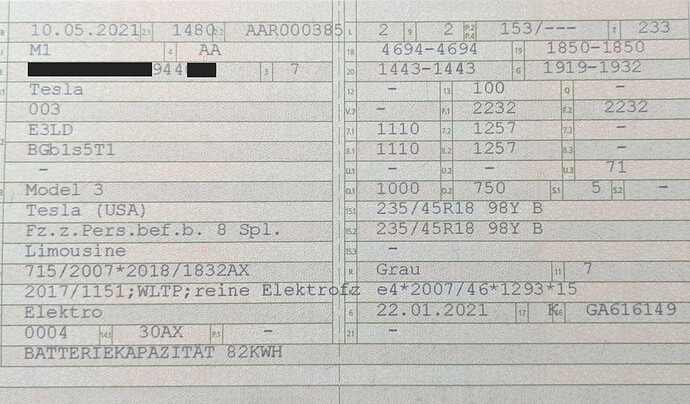 B 10.05.2021 2.1 1480 2.2 AAR000385 L 2 9 2 P.2 P.4 153/--- T 233
M1 4 AA 18 4694-4694 19 1850-1850
E 944 3 7 20 1443-1443 G 1919-1932
Tesla 12 - 13 100 Q -
003 V.7 - F.1 2232 F.2 2232
E3LD 7.1 1110 7.2 1257 7.3 -
BGb1s5T1 8.1 1110 8.2 1257 8.3 -
- U.1 - U.2 - U.3 71
Model 3 O.1 1000 O.2 750 S.1 5 S.2 -
Tesla (USA) 15.1 235/45R18 98Y B
Fz.z.Pers.bef.b. 8 Spl. 15.2 235/45R18 98Y B
Limousine 15.3 -
715/2007*2018/1832AX R Grau 11 7
2017/1151;WLTP;reine Elektrofz e4*2007/46*1293*15
Elektro 6 22.01.2021 17 K 16 GA616149
0004 14.1 30AX P.1 - 21 -
BATTERIEKAPAZITÄT 82KWH